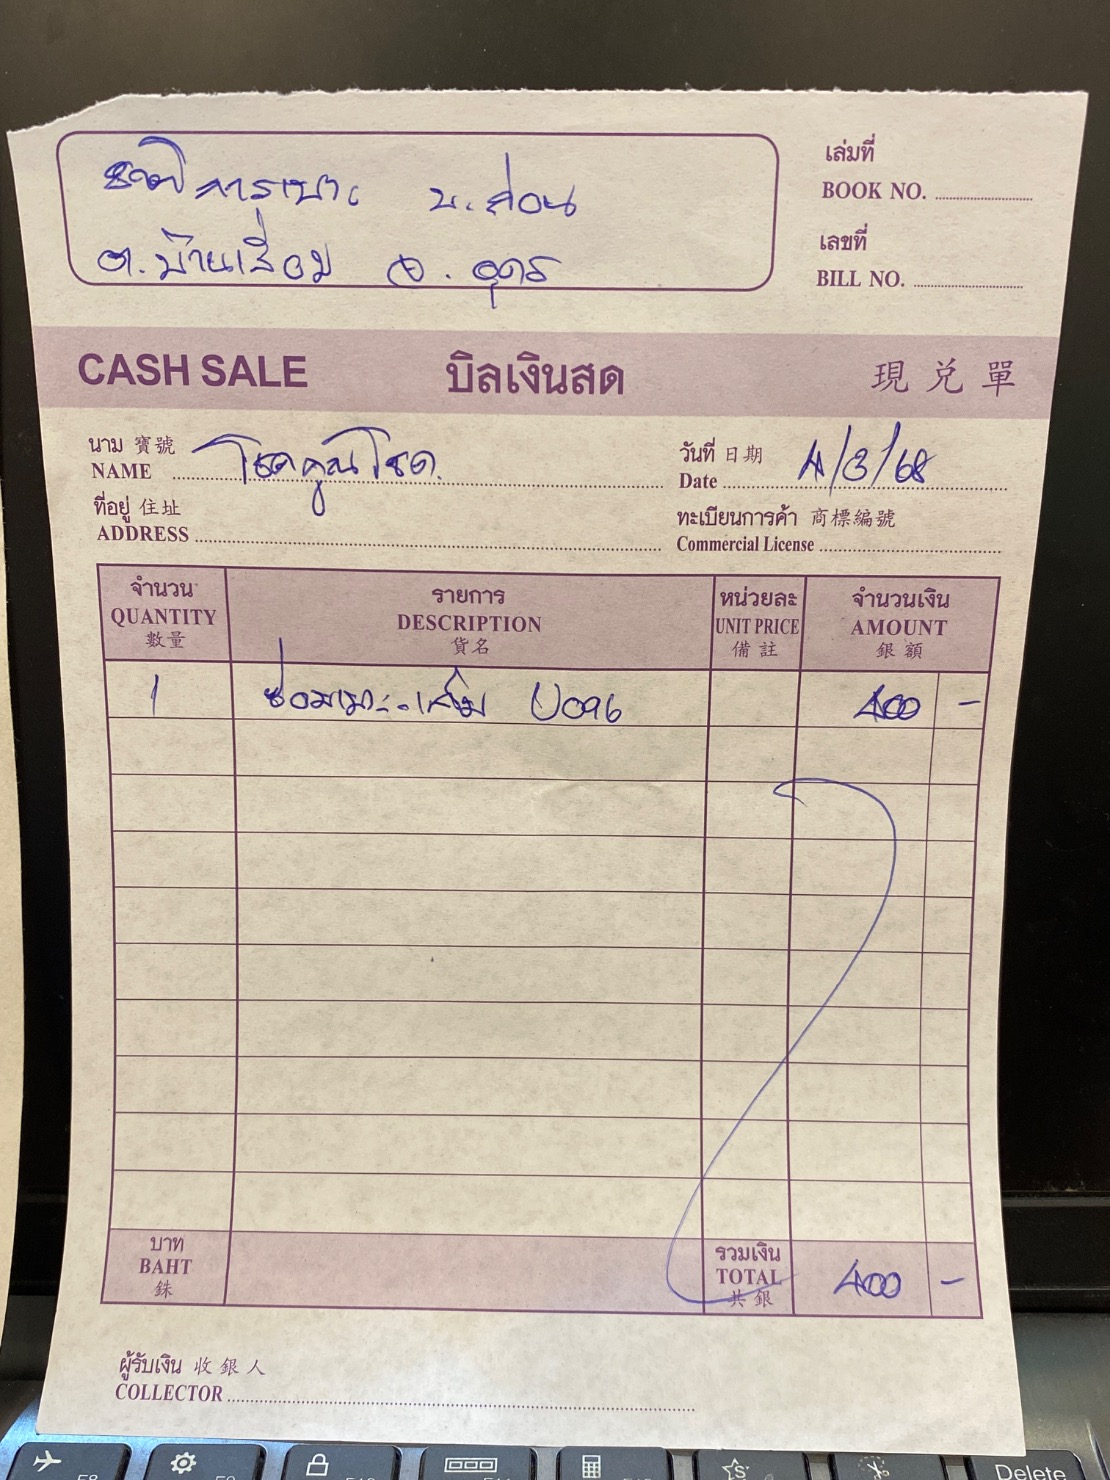 ชาติการเบาะ บ.ส่อน
ต.บ้านเลื่อม อ.อุดร
เล่มที่
BOOK NO.
เลขที่
BILL NO.
CASH SALE บิลเงินสด 現兌單
นาม 寶號
NAME โชคคูณโชค
วันที่ 日期
Date 4/3/68
ที่อยู่ 住址
ADDRESS
ทะเบียนการค้า 商標編號
Commercial License
จำนวน รายการ หน่วยละ จำนวนเงิน
QUANTITY DESCRIPTION UNIT PRICE AMOUNT
數量 貨名 備註 銀額
1 ซ่อมเบาะ 400 -
บาท รวมเงิน
BAHT TOTAL 400 -
銖 共銀
ผู้รับเงิน 收銀人
COLLECTOR
Delete